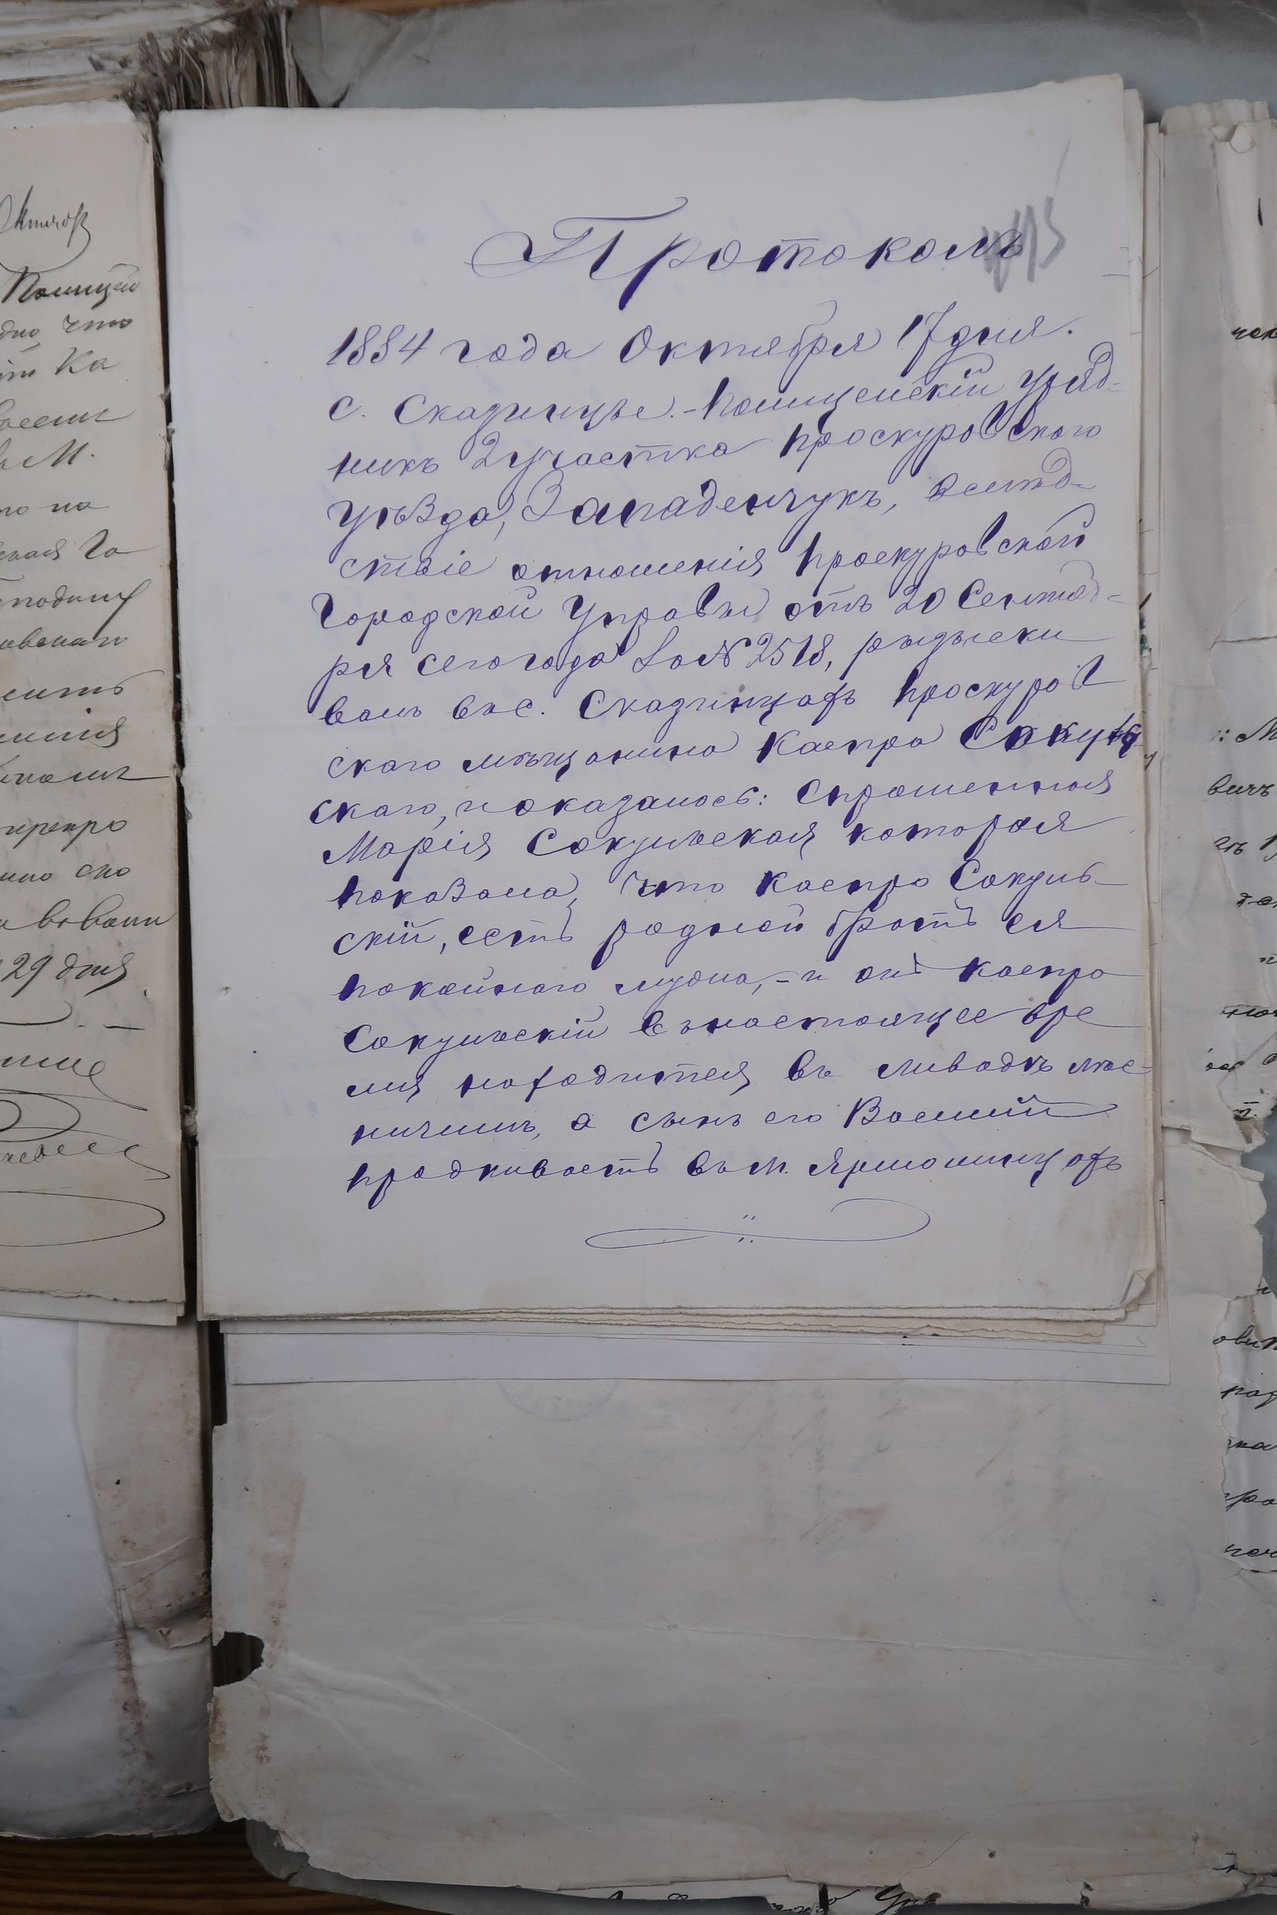 Протоколъ
1884 года Октября 17 дня.
с. Сказинцы.- Полицейскій Уряд-
никъ 2 участка Проскуровского
уѣзда, Западенчукъ, вслѣд-
ствіе отношенія Проскуровской
Городской Управы отъ 20 Сентяб-
ря сего года за № 2518, розыски
валъ въ с. Сказинцахъ Проскуров
ского мѣщанина Каспра Сокуль
ского, и оказалось: Спрошенная
Марія Сокульская которая
показала, что Каспро Сокуль-
скій, есть родной братъ ея
покойного мужа, - и онъ Каспро
Сокульскій въ настоящее вре
мя находится въ Ливадкъ лѣс-
ничимъ, а сынъ его Василій
проживаетъ въ м. Ярмолинцахъ
Полицей
что
Ка
М.
на
29 дня